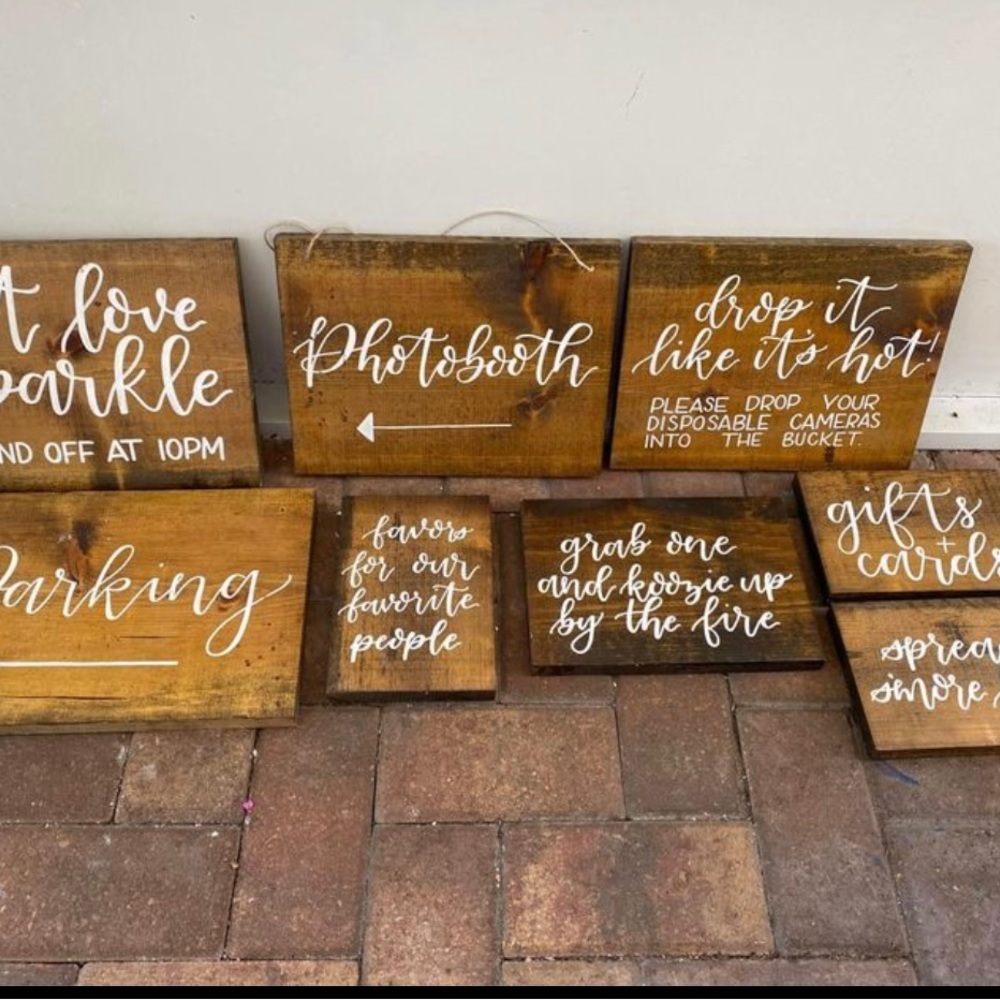 love
ND OFF AT 10PM
Photobooth
drop it
like it's hot!
PLEASE DROP YOUR
DISPOSABLE CAMERAS
INTO THE BUCKET.
Parking
favors
for our
favorite
people
grab one
and koozie up
by the fire
gifts
+
cards
s'more